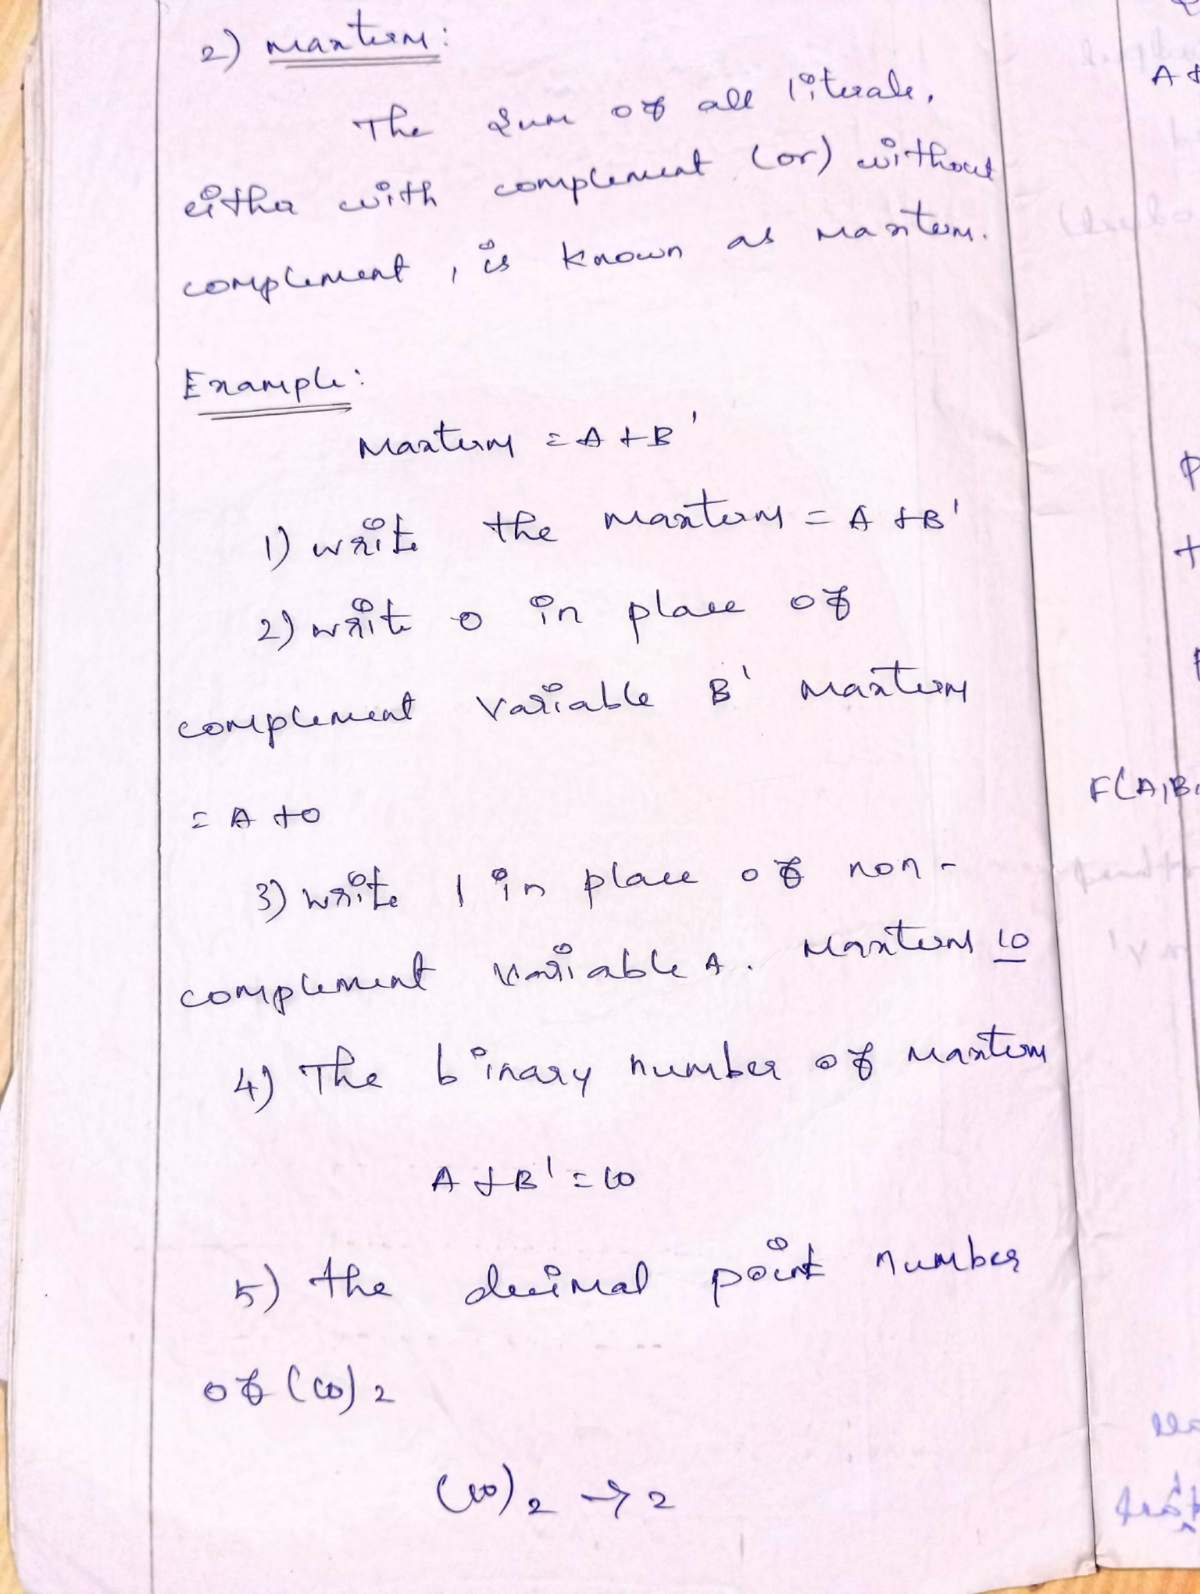 2) Maxterm:
The Sum of all literals,
either with complement (or) without
complement, is known as Maxterm.
Example:
Maxterm = A+B'
1) write the maxterm = A+B'
2) write 0 in place of
complement variable B' Maxterm
= A+0
3) write 1 in place of non-
complement variable A. Maxterm 10
4) The binary number of Maxterm
A+B' = 10
5) the decimal point number
of (10)2
(10)2 → 2
F(A,B,